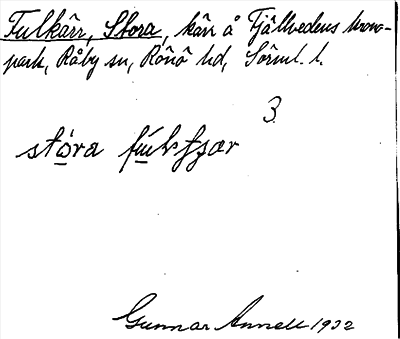 Fulkärr, Stora, kärr å Fjällvedens krono-
park, Råby sn, Rönö hd, Sörml. l.
3.
stora
Gunnar Annell 1932